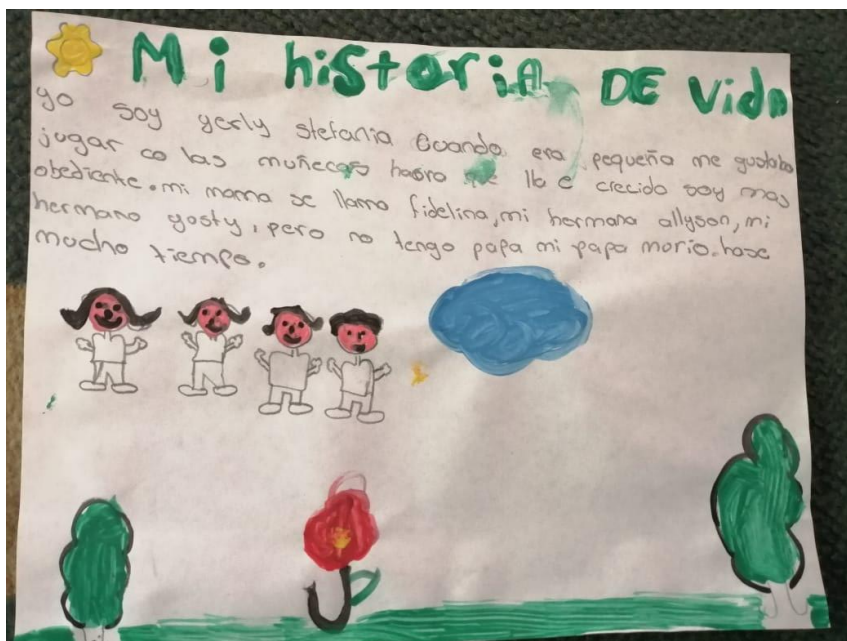 Mi historiA DE Vida
yo soy yerly stefania cuando era pequeña me gustaba
jugar co las muñecas haora que lla e crecido soy mas
obediente. mi mama se llama fidelina, mi hermana allyson, mi
hermano yosty, pero no tengo papa mi papa murio. hase
mucho tiempo.